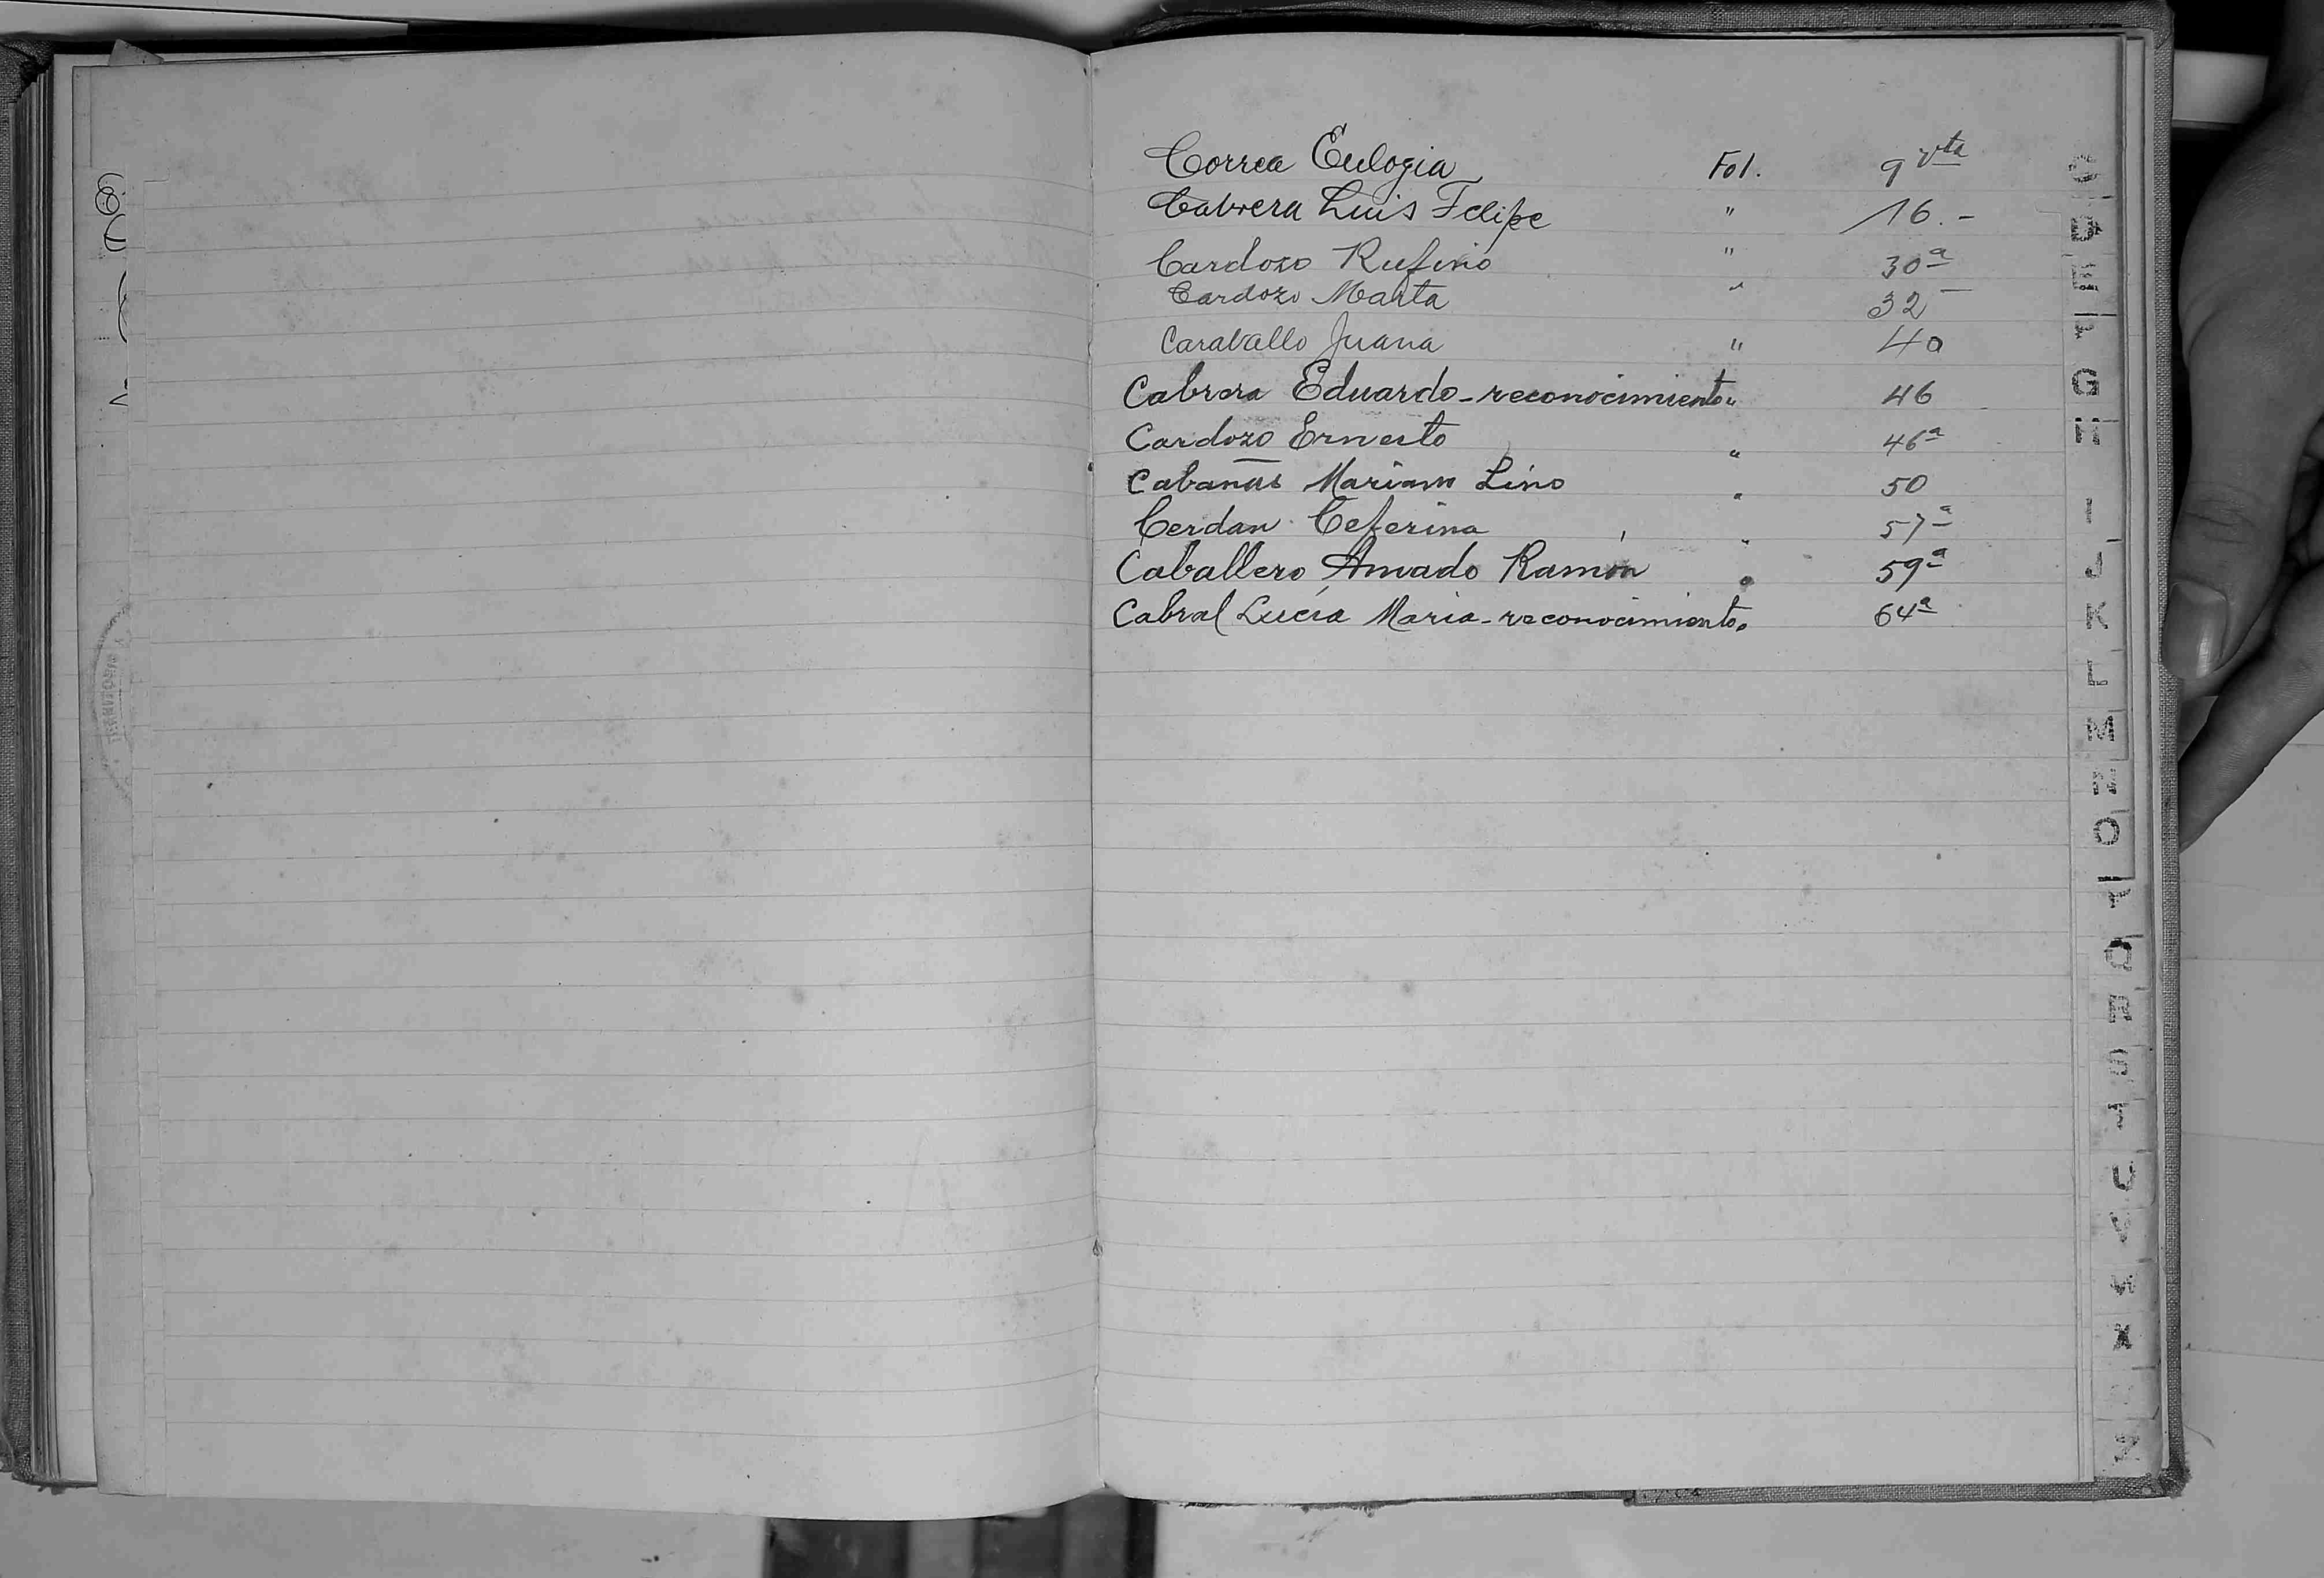 Correa Eulogia Fol. 9 vta
Cabrera Luis Felipe " 16.-
Cardozo Rufino " 30ª
Cardozo Marta " 32-
Caraballo Juana " 40
Cabrera Eduardo-reconocimiento " 46
Cardozo Ernesto " 46ª
Cabañas Mariano Lino " 50
Cerdan Ceferina " 57ª
Caballero Amado Ramón " 59ª
Cabral Lucía Maria-reconocimiento " 64ª
C
D
E
F
G
H
I
J
K
L
M
N
O
P
Q
R
S
T
U
V
W
X
Z